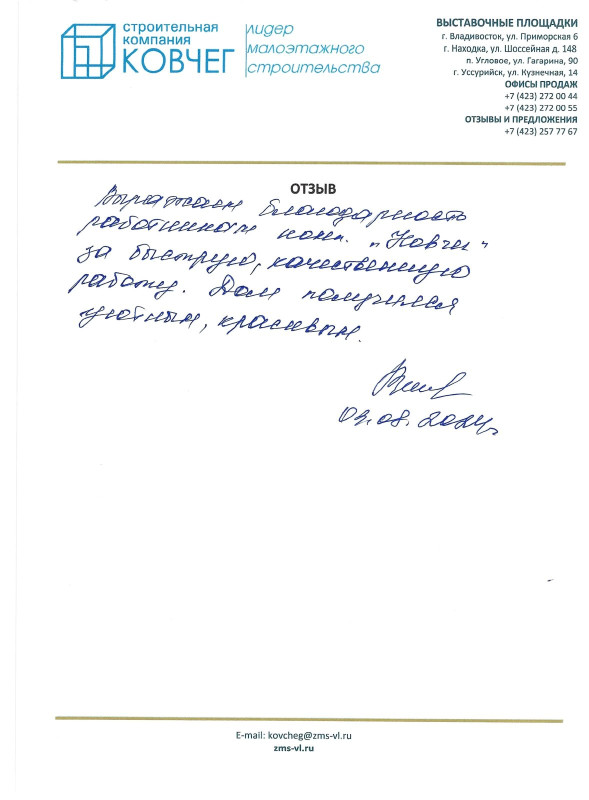 строительная
компания
КОВЧЕГ
лидер
малоэтажного
строительства
ВЫСТАВОЧНЫЕ ПЛОЩАДКИ
г. Владивосток, ул. Приморская 6
г. Находка, ул. Шоссейная д. 148
п. Угловое, ул. Гагарина, 90
г. Уссурийск, ул. Кузнечная, 14
ОФИСЫ ПРОДАЖ
+7 (423) 272 00 44
+7 (423) 272 00 55
ОТЗЫВЫ И ПРЕДЛОЖЕНИЯ
+7 (423) 257 77 67
ОТЗЫВ
Выражаем благодарность
работникам комп. "Ковчег"
за быструю, качественную
работу. Дом получился
уютным, красивым.
09.08.2024г.
E-mail: kovcheg@zms-vl.ru
zms-vl.ru